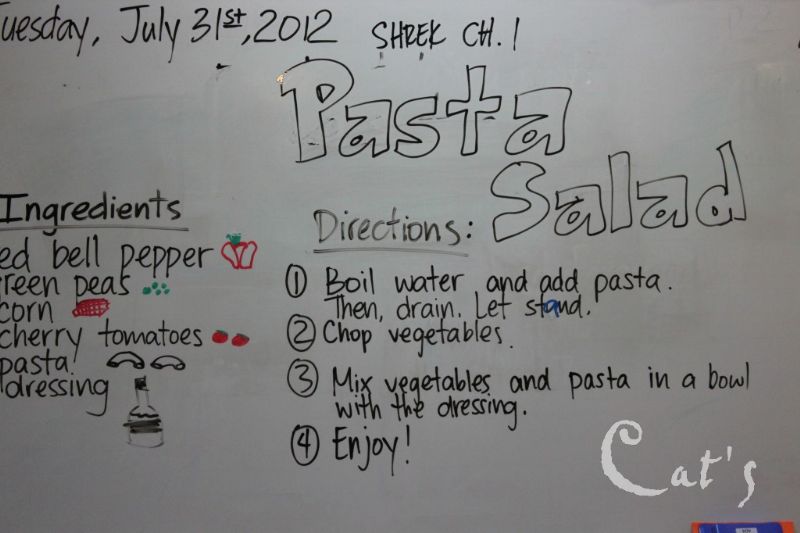 uesday, July 31st, 2012 SHREK CH. 1
Pasta
Salad
Ingredients
ed bell pepper
reen peas
corn
cherry tomatoes
pasta
dressing
Directions:
1 Boil water and add pasta.
Then, drain. Let stand.
2 Chop vegetables.
3 Mix vegetables and pasta in a bowl
with the dressing.
4 Enjoy!
Cat's